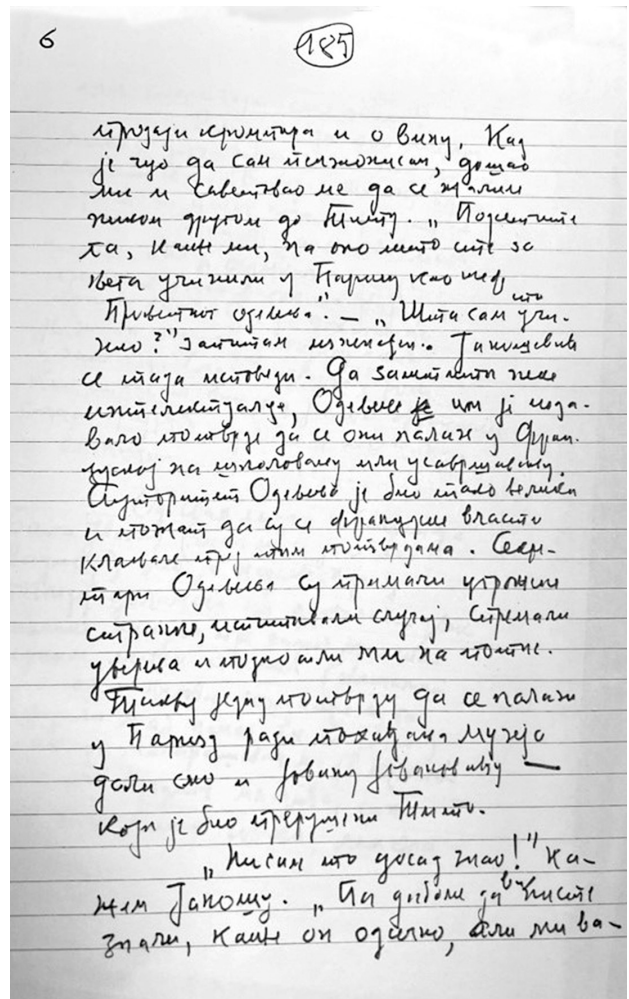 6
185
продаји кромпира и о вину. Кад
је чуо да сам пензионисан, дошао
ми и саветовао ме да се жалим
ником другом до Титу. „Подсетите
га, каже ми, на оно што сте за
њега учинили у Паризу као шеф
Просветног одељења". — „Шта сам то учи-
нио?" запитам изненађен.
се тада исповеди. Да заштити неке
интелектуалце, Одељење им је изда-
вало потврде да се они налазе у Фран-
цуској на школовању или усавршавању.
Ауторитет Одељења је био тако велики
и моћан да су се француске власти
клањале пред тим потврдама. Секре-
тари Одељења су примали угрожене
странке, испитивали случај, спремали
уверења и подносили ми на потпис.
Такву једну потврду да се налази
у Паризу ради похађања музеја
дали смо и Јовану Јовановићу —
који је био прерушени Тито.
„Нисам то досад знао!" ка-
жем Јаношу. „Па додоле да ви нисте
знали, каже он одлично, али ми ва-